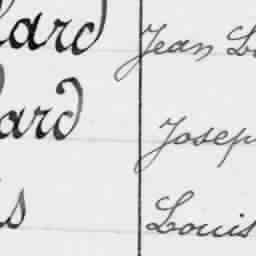 lard Jean Lo
ard Joseph
is Louis